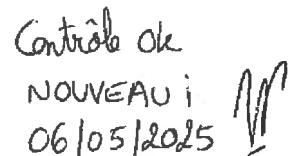 Contrôle ok
NOUVEAU i
06/05/2025